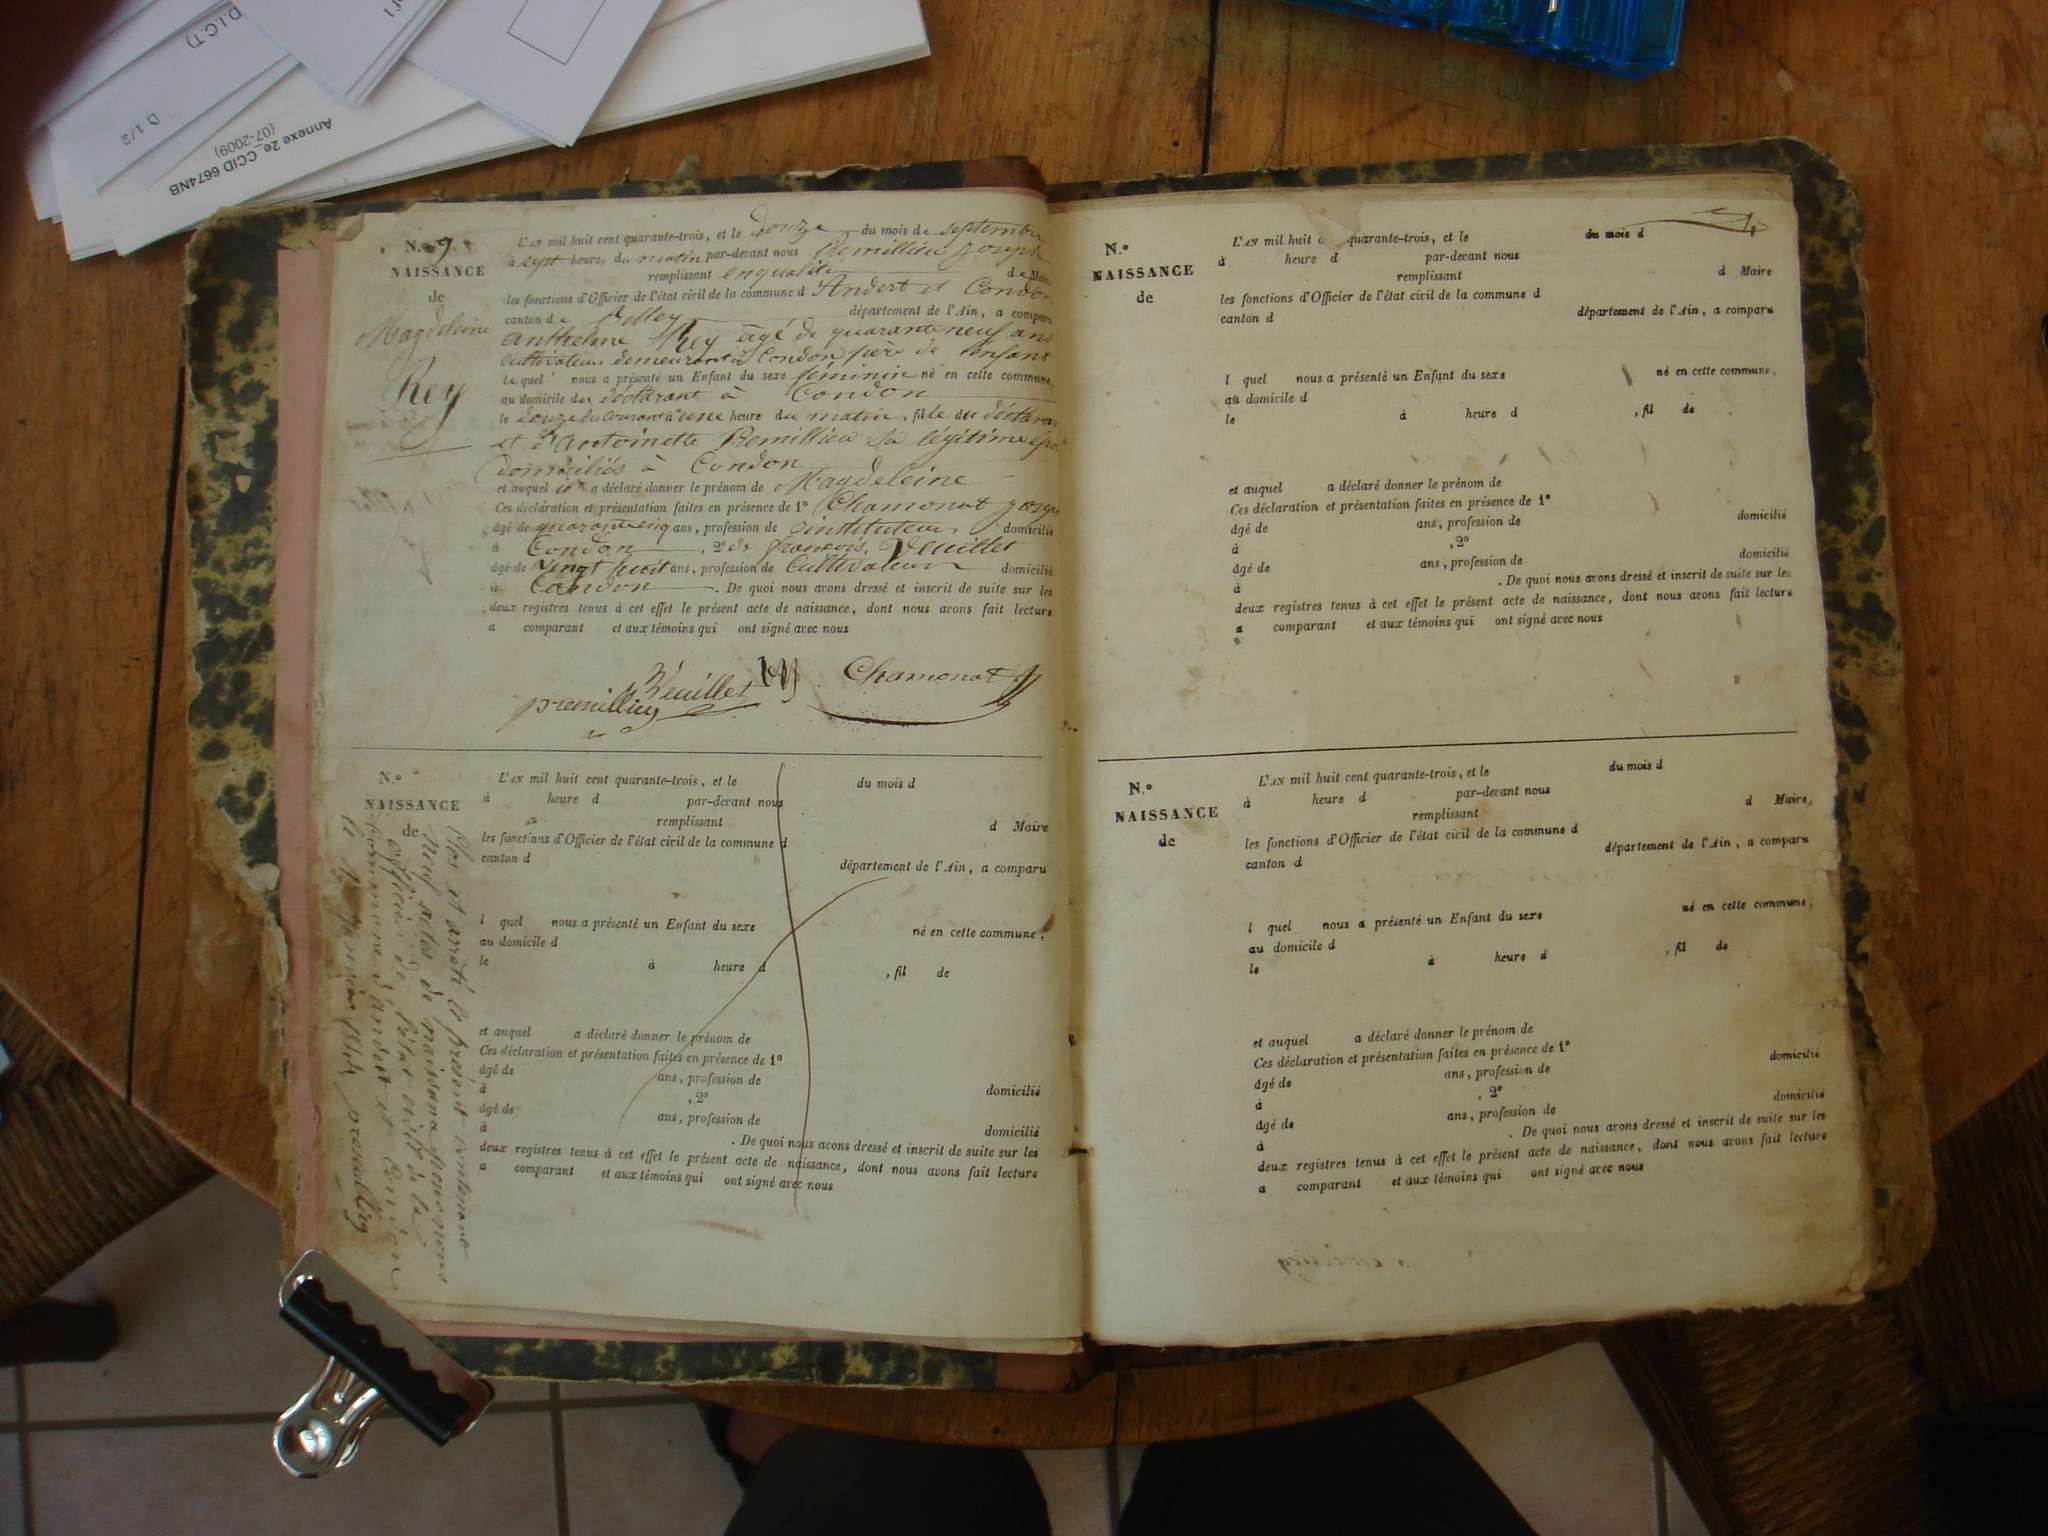 D.I.C.T)
D 1/2
Annexe 2e_CCID 6674NB
(07-2009)
N.° 9
NAISSANCE
de
Magdeleine
Rey
L'AN mil huit cent quarante-trois, et le Douze du mois de septembre
à sept heure, du matin par-devant nous Premillieu Joseph
remplissant en qualité de Maire
les fonctions d'Officier de l'état civil de la commune d'Andert et Condon
canton de Belley département de l'Ain, a comparu
anthelme Rey âgé de quarante neuf ans
cultivateur demeurant à Condon père de l'enfant
Lequel nous a présenté un Enfant du sexe féminin né en cette commune,
au domicile du déclarant à Condon
le douze du courant à une heure du matin, fille du déclarant
et d'Antoinette Premillieu sa légitime
domiciliés à Condon
et auquel il a déclaré donner le prénom de Magdeleine
Ces déclaration et présentation faites en présence de 1° Chamonat
âgé de quarante cinq ans, profession de instituteur domicilié
à Condon, 2° de françois Veuillet
âgé de vingt huit ans, profession de Cultivateur domicilié
à Condon. De quoi nous avons dressé et inscrit de suite sur les
deux registres tenus à cet effet le présent acte de naissance, dont nous avons fait lecture
a comparant et aux témoins qui ont signé avec nous
Veuillet Chamonat
premillieu
N.°
NAISSANCE
de
L'AN mil huit cent quarante-trois, et le du mois d
à heure d par-devant nous
remplissant d Maire
les fonctions d'Officier de l'état civil de la commune d
canton d département de l'Ain, a comparu
l quel nous a présenté un Enfant du sexe né en cette commune,
au domicile d
le à heure d , fil de
et auquel a déclaré donner le prénom de
Ces déclaration et présentation faites en présence de 1°
âgé de ans, profession de domicilié
à , 2°
âgé de ans, profession de domicilié
à . De quoi nous avons dressé et inscrit de suite sur les
deux registres tenus à cet effet le présent acte de naissance, dont nous avons fait lecture
a comparant et aux témoins qui ont signé avec nous
Clos et arrêté le présent contenant
neuf actes de naissance par nous
officier de l'état civil de la
Commune d'andert et Condon
le 1er janvier 1844 premillieu
N.°
NAISSANCE
de
L'AN mil huit cent quarante-trois, et le du mois d
à heure d par-devant nous
remplissant d Maire
les fonctions d'Officier de l'état civil de la commune d
canton d département de l'Ain, a comparu
l quel nous a présenté un Enfant du sexe né en cette commune,
au domicile d
le à heure d , fil de
et auquel a déclaré donner le prénom de
Ces déclaration et présentation faites en présence de 1°
âgé de ans, profession de domicilié
à , 2°
âgé de ans, profession de domicilié
à . De quoi nous avons dressé et inscrit de suite sur les
deux registres tenus à cet effet le présent acte de naissance, dont nous avons fait lecture
a comparant et aux témoins qui ont signé avec nous
N.°
NAISSANCE
de
L'AN mil huit cent quarante-trois, et le du mois d
à heure d par-devant nous
remplissant d Maire,
les fonctions d'Officier de l'état civil de la commune d
canton d département de l'Ain, a comparu
l quel nous a présenté un Enfant du sexe né en cette commune,
au domicile d
le à heure d , fil de
et auquel a déclaré donner le prénom de
Ces déclaration et présentation faites en présence de 1°
âgé de ans, profession de domicilié
à , 2°
âgé de ans, profession de domicilié
à . De quoi nous avons dressé et inscrit de suite sur les
deux registres tenus à cet effet le présent acte de naissance, dont nous avons fait lecture
a comparant et aux témoins qui ont signé avec nous